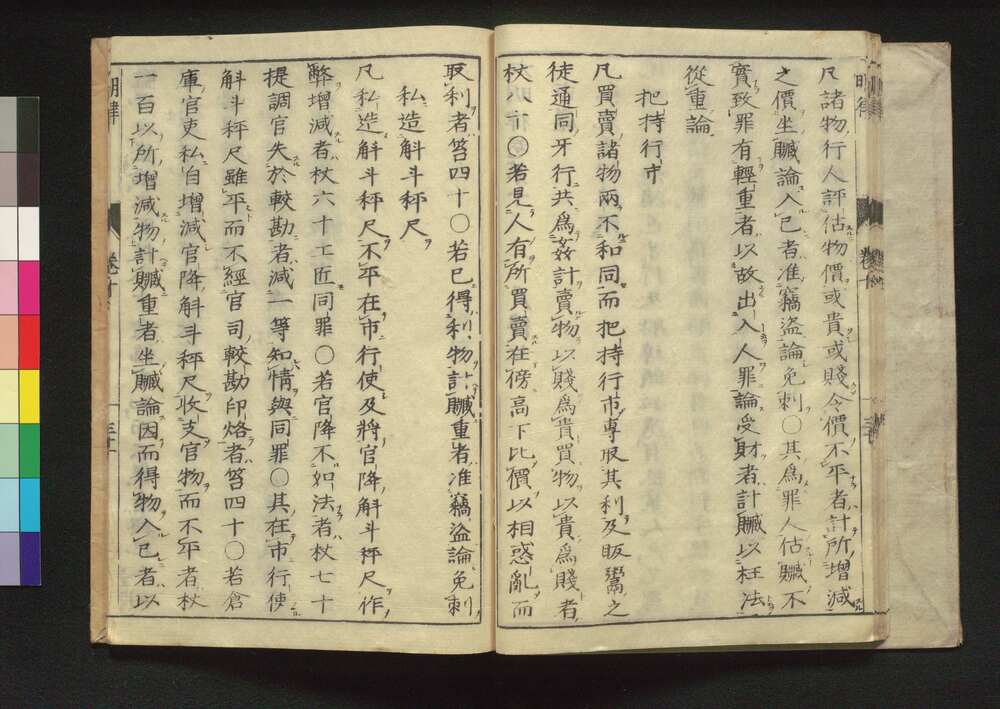 凡諸物行人評估物價或貴或賤令價不平者計所增減
之價坐贓論入己者准竊盜論免刺○其為罪人估贓不
實致罪有輕重者以故出入人罪論受財者計贓以枉法
從重論
把持行市
凡買賣諸物兩不和同而把持行市專取其利及販鬻之
徒通同牙行共為姦計賣物以賤為貴買物以貴為賤者
杖八十○若見人有所買賣在傍高下比價以相惑亂而
取利者笞四十○若已得利物計贓重者准竊盜論免刺
私造斛斗秤尺
凡私造斛斗秤尺不平在市行使及將官降斛斗秤尺作
弊增減者杖六十工匠同罪○若官降不如法者杖七十
提調官失於較勘者減一等知情與同罪○其在市行使
斛斗秤尺雖平而不經官司較勘印烙者笞四十○若倉
庫官吏私自增減官降斛斗秤尺收支官物而不平者杖
一百以所增減物計贓重者坐贓論因而得物入己者以
明律
卷十
三十